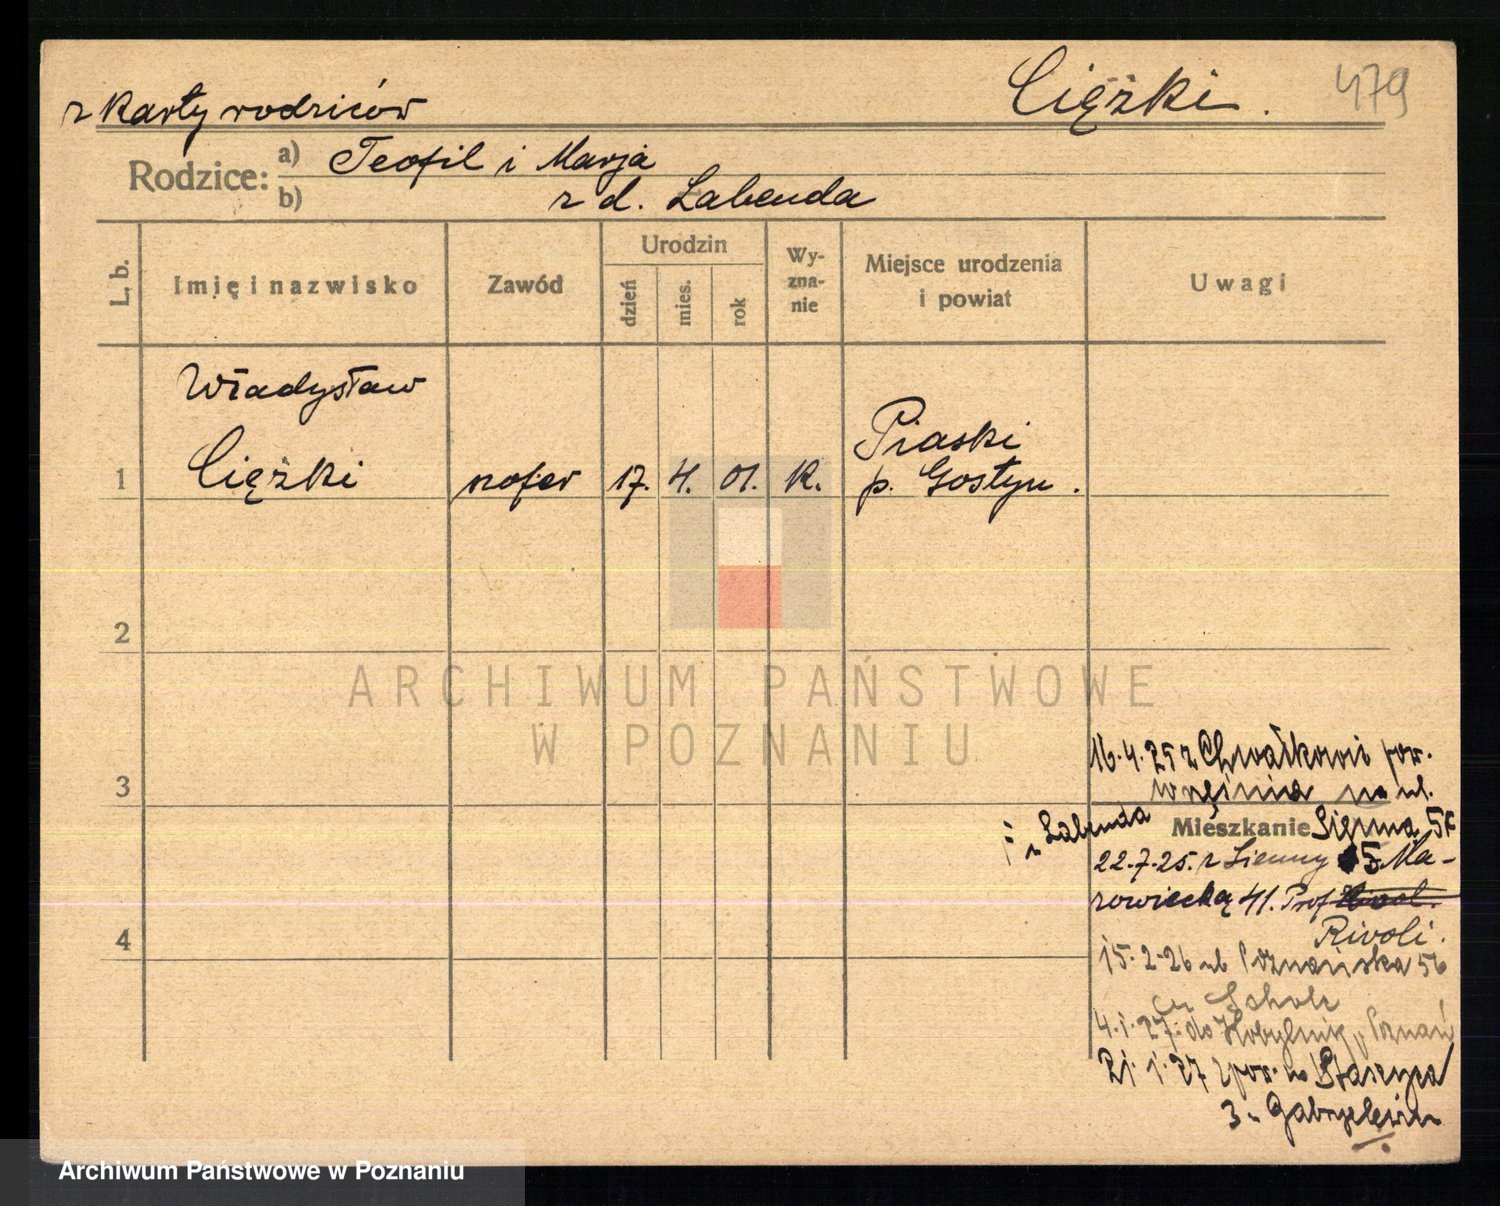 z karty rodziców
Ciężki. 479
Rodzice: a) Teofil i Marja
b) z d. Labenda
L. b.
Imię i nazwisko
Zawód
Urodzin
dzień
mies.
rok
Wy-
zna-
nie
Miejsce urodzenia
i powiat
Uwagi
Władysław
1 Ciężki szofer 17. 4. 01. K. Piaski
p. Gostyn.
2
3
4
16.4.25 z Chwałkowic pow.
Września na ul.
Mieszkanie Sienna
i z Labenda
22.7.25. z Sienny 5 Ma-
zowiecką 41. Prof
Rivoli.
15.2.26 ul Poznańska 56
Scholz
4.1.27. do Kobylnik, Poznań
21.1.27 z pow. na Staszyca
3 Gabryelewicz
ARCHIWUM PAŃSTWOWE
W POZNANIU
Archiwum Państwowe w Poznaniu